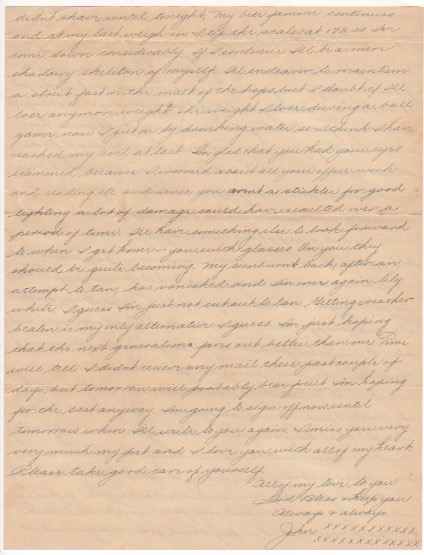 didn't shave until tonight. My beer famine continues
and at my last weigh in I tip the scales at 178 so I've
come down considerably. If I continue I'll be a mere
shadowy skeleton of myself. I'll endeavor to maintain
a strict fast on the malt of the hops, but I doubt if I'll
lose anymore weight. The weight I lose during a ball
game now I put on by drinking water so I think I have
reached my level at last. I'm glad that you had your eyes
examined, because I worried about all your office work
and reading etc and since you aren't a stickler for good
lighting a lot of damage could have resulted over a
period of time. I'll have something else to look forward
to when I get home - you with glasses. On you they
should be quite becoming. My sunburnt back, after an
attempt to tan, has vanished and I'm once again lily
white. I guess I'm just not cut out to tan. Getting weather
beaten is my only alternative I guess. I'm just hoping
that the next generation fares out better than me. Time
will tell. I didn't receive any mail these past couple of
days but tomorrow will probably bear fruit. I'm hoping
for the best anyway. I'm going to sign off now until
tomorrow when I'll write to you again. I miss you very
very much my pet and I love you with all of my heart.
Please take good care of yourself.
All of my love to you
God Bless & keep you
Always & always
John xxxxxxxxxxx
xxxxxxxxxxxx